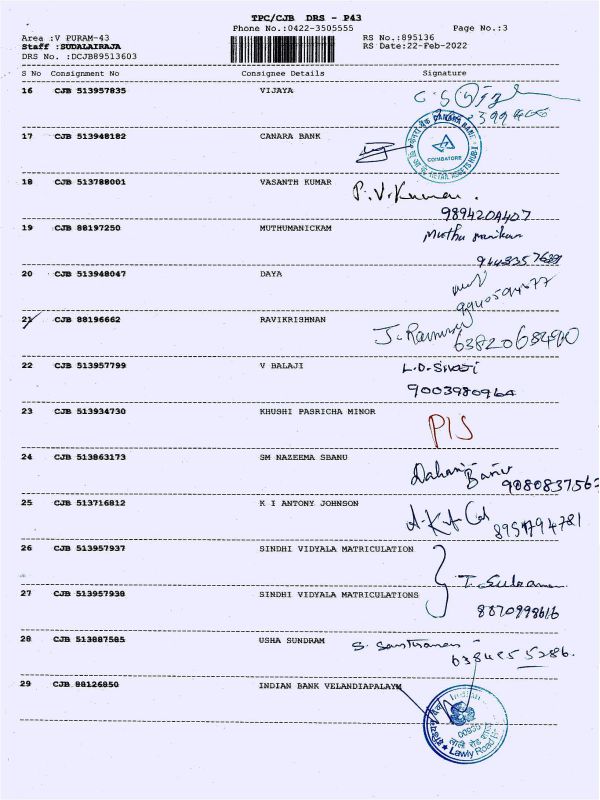 TPC/CJB DRS - P43
Phone No.:0422-3505555
Page No.:3
Area :V PURAM-43
RS No.:895136
Staff :SUDALAIRAJA
RS Date:22-Feb-2022
DRS No. :DCJB89513603
S No Consignment No Consignee Details Signature
16 CJB 513957835 VIJAYA
17 CJB 513948182 CANARA BANK
CANARA BANK
COIMBATORE
18 CJB 513788001 VASANTH KUMAR P.V.Kumar.
9894204407
19 CJB 88197250 MUTHUMANICKAM Muthu manikam
20 CJB 513948047 DAYA
21 CJB 88196662 RAVIKRISHNAN
22 CJB 513957799 V BALAJI L.D.SIVAJI
9003980964
23 CJB 513934730 KHUSHI PASRICHA MINOR PIS
24 CJB 513863173 SM NAZEEMA SBANU
Banu
9080837567
25 CJB 513716812 K I ANTONY JOHNSON
8951794781
26 CJB 513957937 SINDHI VIDYALA MATRICULATION
27 CJB 513957938 SINDHI VIDYALA MATRICULATIONS
8870998616
28 CJB 513887585 USHA SUNDRAM
29 CJB 88126850 INDIAN BANK VELANDIAPALAYM
Indian
Lawly Road